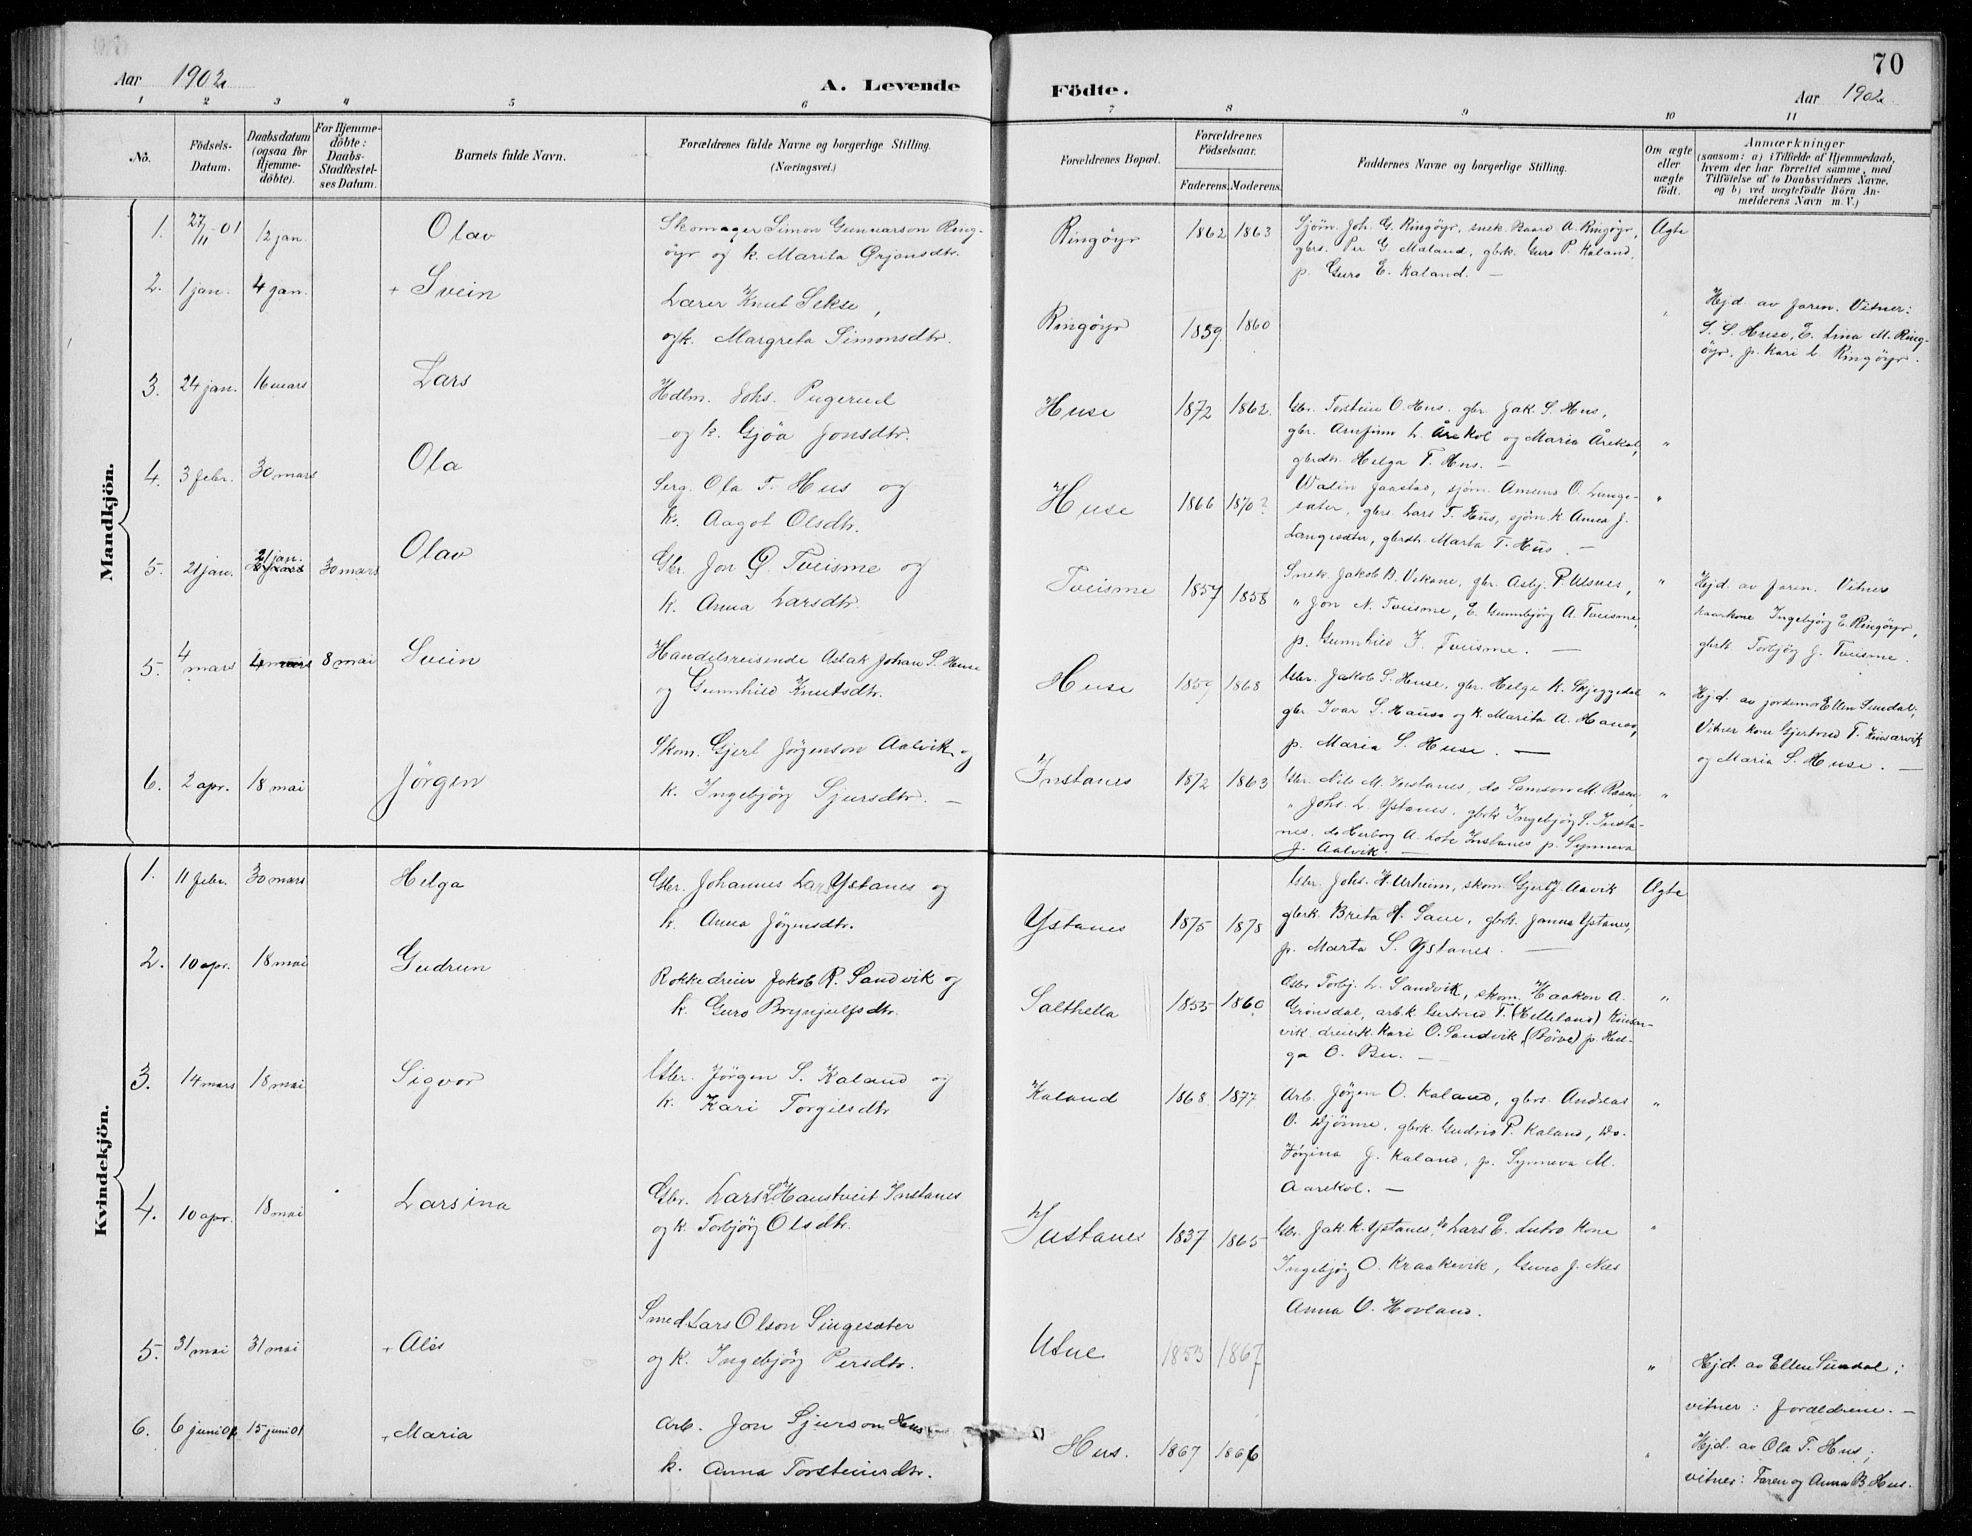 70
Aar 1902
A. Levende
Födte.
Aar 1902
1 2 3 4 5 6 7 8 9 10 11
No.
Födsels-Datum.
Daabsdatum (ogsaa för Hjemme-döbte).
For Hjemme-döbte: Daabs-Stadfæstel-ses Datum.
Barnets fulde Navn.
Forældrenes fulde Navne og borgerlige Stilling.
(Næringsvei.)
Forældrenes Bopæl.
Forældrenes Födselsaar.
Faderens. Moderens.
Faddernes Navne og borgerlige Stilling.
Om ægte eller uægte födt.
Anmærkninger
(saasom: a) i Tilfælde af Hjemmedaab,
hvem der har forrettet samme, med
Tilföielse af to Daabsvidners Navne,
og b) ved uægtefödte Börn An-
melderens Navn m. V.)
Mandkjön.
1. 27/11-01 12 jan. Olav
Skomager Simon Gunnarson Ring-
öyr og k. Marita Ørjansdtr.
Ringöyr 1862 1863
Sjöm. Joh. G. Ringöyr, snek. Baard A. Ringöyr,
gbr. Per G Maland, gbrk. Guro P. Kaland,
p. Guro E. Kaland. —
Ægte
2. 1 jan. 4 jan. + Svein
Lærer Knut Sekse,
og k. Margreta Simonsdtr.
Ringöyr 1859 1860
"
Hjd. av faren. Vitner:
S. S. Huse, E. Lina M. Ring-
öyr, p. Kari L. Ringöyr.
3. 24 jan. 16 mars Lars
Hdlm. Johs. Pugerud
og k. Gjöa Jonsdtr.
Huse 1872 1862
Gbr. Torstein O. Hus. gbr. Jak. S. Hus,
gbr. Arnfinn L. Årekol og Maria Årekol,
gbrdtr. Helga T. Hus. —
"
4. 3 febr. 30 mars Ola
Serg. Ola T. Hus og
k. Aagot Olsdtr.
Huse 1866 1870?
Jaastad, sjöm. Amund O. Lange-
sæter, gbr. Lars T. Hus, sjöm.k. Anna J.
Langesæter, gbrdtr. Marta T. Hus. —
"
5. 21 jan. 21 jan. 30 mars Olav
Gbr. Jon O. Tveisme og
k. Anna Larsdtr.
Tveisme 1857 1858
Snek. Jakob B. Vikane, gbr. Asbj. P. Utsnes,
" Jon N. Tveisme, E. Gunnbjörg A. Tveisme,
p. Gunnhild J. Tveisme. —
"
Hjd. av faren. Vitner
kaarkone Ingebjörg E. Ringöyr,
gbrk. Torbjörg J. Tveisme.
5. 4 mars 4 mars 8 mai Svein
Handelsreisende Aslak Johan S. Huse
og Gunnhild Knutsdtr.
Huse 1859 1868
Gbr. Jakob S. Huse, gbr. Helge K. Skjeggedal
gbr. Ivar S. Hauso og k. Marita A. Hauso,
p. Maria S. Huse. —
"
Hjd. av jordemor Ellen Sundal;
Vitner kone Gjertrud T. Kinsarvik
og Maria S. Huse. —
6. 2 apr. 18 mai Jörgen
Skom. Gjert Jörgenson Aalvik og
k. Ingebjörg Sjursdtr. —
Instanes 1872 1863
Gbr. Nils M. Instanes, do Samson M. Raaen,
" Johs. L. Ystanes, gbrk Ingebjörg S. Insta-
nes. do Herborg A. Lote Instanes p. Synneva
J. Aalvik. —
"
Kvindekjön.
1. 11 febr. 30 mars Helga
Gbr. Johannes Lars Ystanes og
k. Anna Jörgensdtr.
Ystanes 1875 1878
Gbr. Johs. H. Urheim, skom. Gjert J. Aavik
gbrk. Brita H. Saue, gbrk. Janna Ystanes,
p. Marta S. Ystanes. —
Ægte
2. 10 apr. 18 mai Gudrun
Rokkedreier Jakob R. Sandvik og
k. Guro Brynjulfsdtr.
Salthella 1855 1860
Gbr Torbj. L. Sandvik, skom. Haakon A.
Grönsdal, arb.k. Gertrud T. (Helleland) Kinsar-
vik. dreierk. Kari O. Sandvik, (Börve) p. Hel-
ga O. Bu. —
"
3. 14 mars 18 mai Sigvor
Gbr. Jörgen S. Kaland og
k. Kari Torgilsdtr
Kaland 1868 1877
Arb. Jörgen O. Kaland, gbr. Andreas
O. Djönne, gbrk. Gudrid P. Kaland, do.
Jörgina J. Kaland, p. Synneva M.
Aarekol. —
"
4. 10 apr. 18 mai Larsina
Gbr. Lars L Haustveit Instanes
og k. Torbjörg Olsdtr.
Instanes 1837 1865
Gbr. Jak. K. Ystanes, do Lars E. Lutro Kone
Ingebjörg O. Kraakevik, Guro J. Næs
Anna O. Hovland.
"
5. 31 mai 31 mai + Alis
Smed Lars Olson Singesæter
og k. Ingebjörg Persdtr.
Utne 1853 1867
"
Hjd. av Ellen Sundal;
vitner: foreldrene. —
6. 6 juni 01 15 juni 01 + Maria
Arb. Jon Sjurson Hus
k. Anna Torsteinsdtr.
Hus. 1867 1866
"
Hjd. av Ola T. Hus;
vitner: Faren og Anna B. Hus.